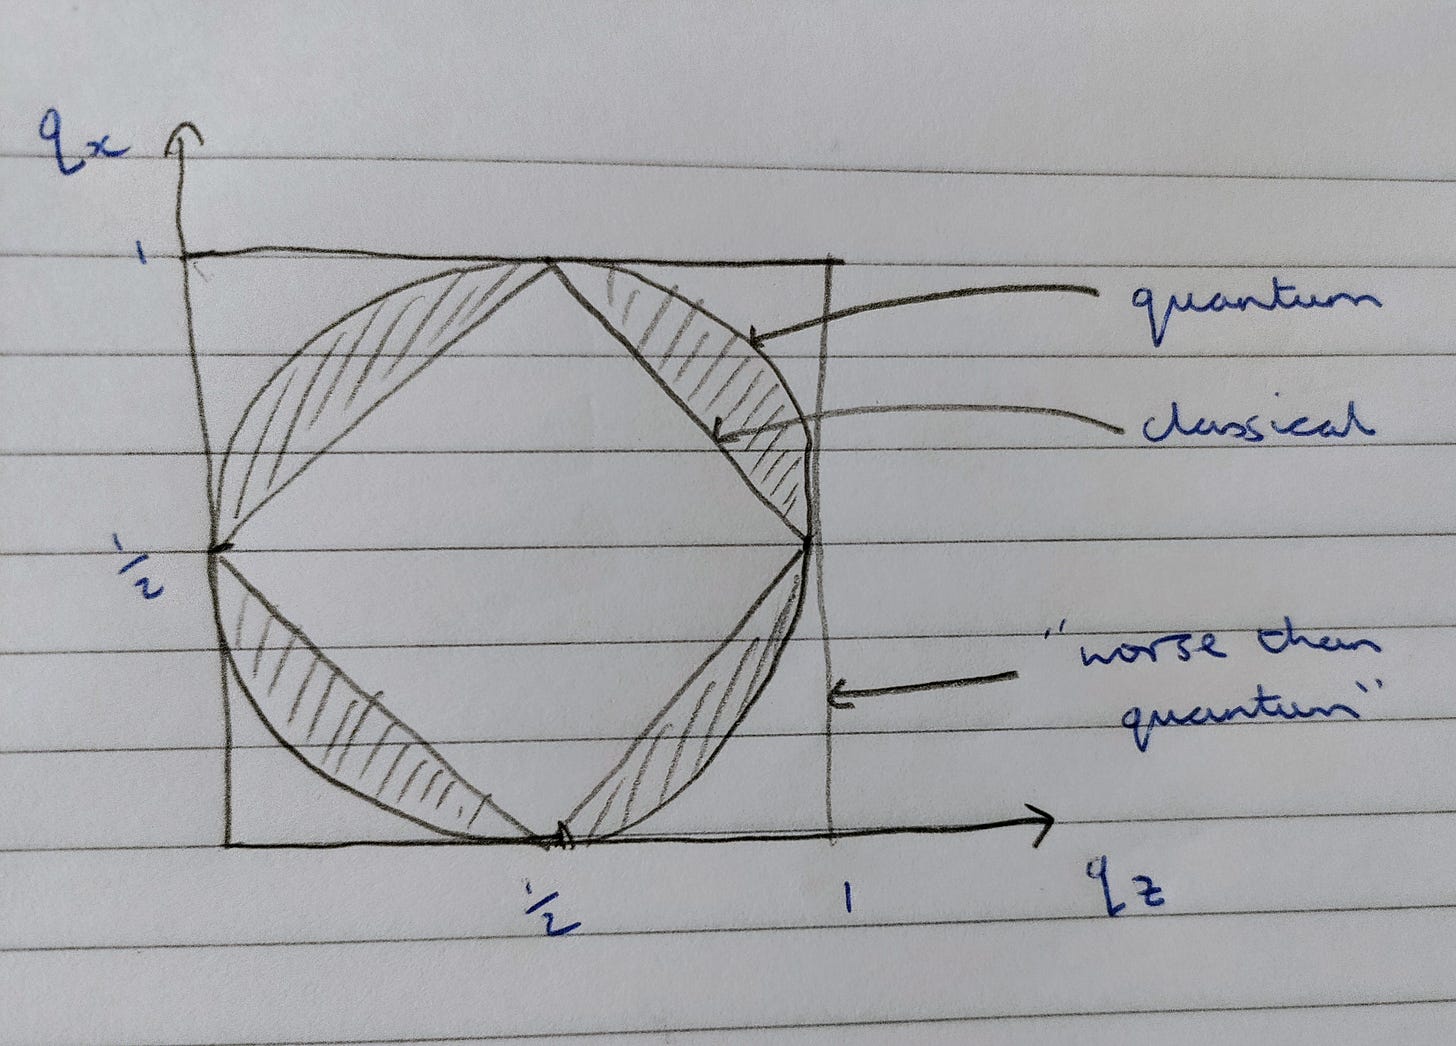 qx
1
quantum
classical
1/2
"worse than
quantum"
1/2
1
qz